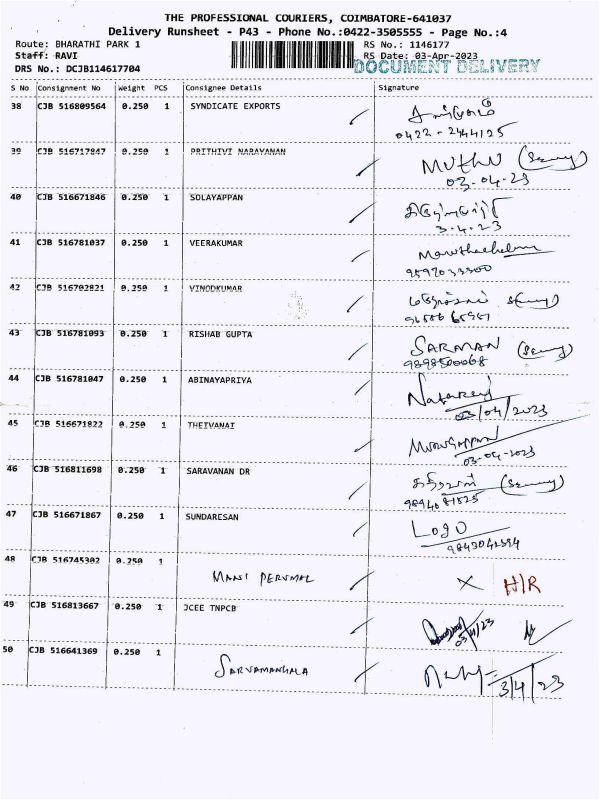 THE PROFESSIONAL COURIERS, COIMBATORE-641037
Delivery Runsheet - P43 - Phone No.:0422-3505555 - Page No.:4
Route: BHARATHI PARK 1 RS No.: 1146177
Staff: RAVI RS Date: 03-Apr-2023
DRS No.: DCJB114617704 DOCUMENT DELIVERY
S No Consignment No Weight PCS Consignee Details Signature
38 CJB 516809564 0.250 1 SYNDICATE EXPORTS
0422 - 2444125
39 CJB 516717847 0.250 1 PRITHIVI NARAYANAN MUTHU
03-04-23
40 CJB 516671846 0.250 1 SOLAYAPPAN
3-4-23
41 CJB 516781037 0.250 1 VEERAKUMAR
42 CJB 516702821 0.250 1 VINODKUMAR
43 CJB 516781093 0.250 1 RISHAB GUPTA SARMAN
9898500068
44 CJB 516781047 0.250 1 ABINAYAPRIYA Nataraj
03/04/2023
45 CJB 516671822 0.250 1 THEIVANAI Murugappan
03-04-2023
46 CJB 516811698 0.250 1 SARAVANAN DR
47 CJB 516671867 0.250 1 SUNDARESAN LOGU
48 CJB 516745302 0.250 1 MANI PERUMAL X H/R
49 CJB 516813667 0.250 1 JCEE TNPCB
50 CJB 516641369 0.250 1 SARVAMANGALA
3/4/23